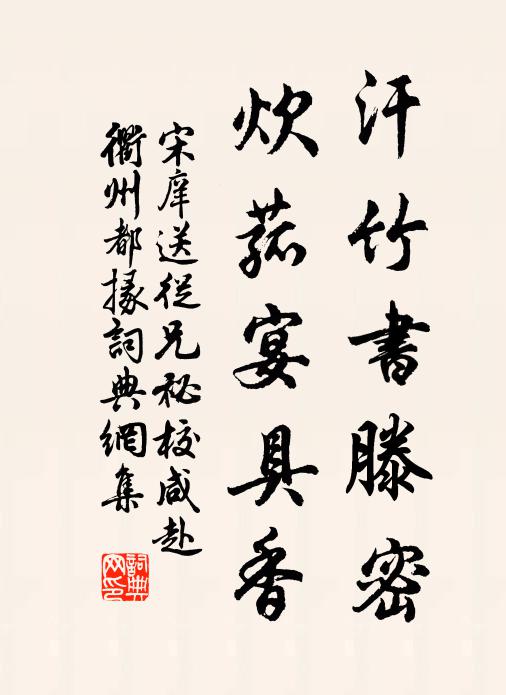 汗竹書滕密
炊菰宴具香
宋庠送從兄祕校咸赴
衢州都掾詞典網集
詞典网印